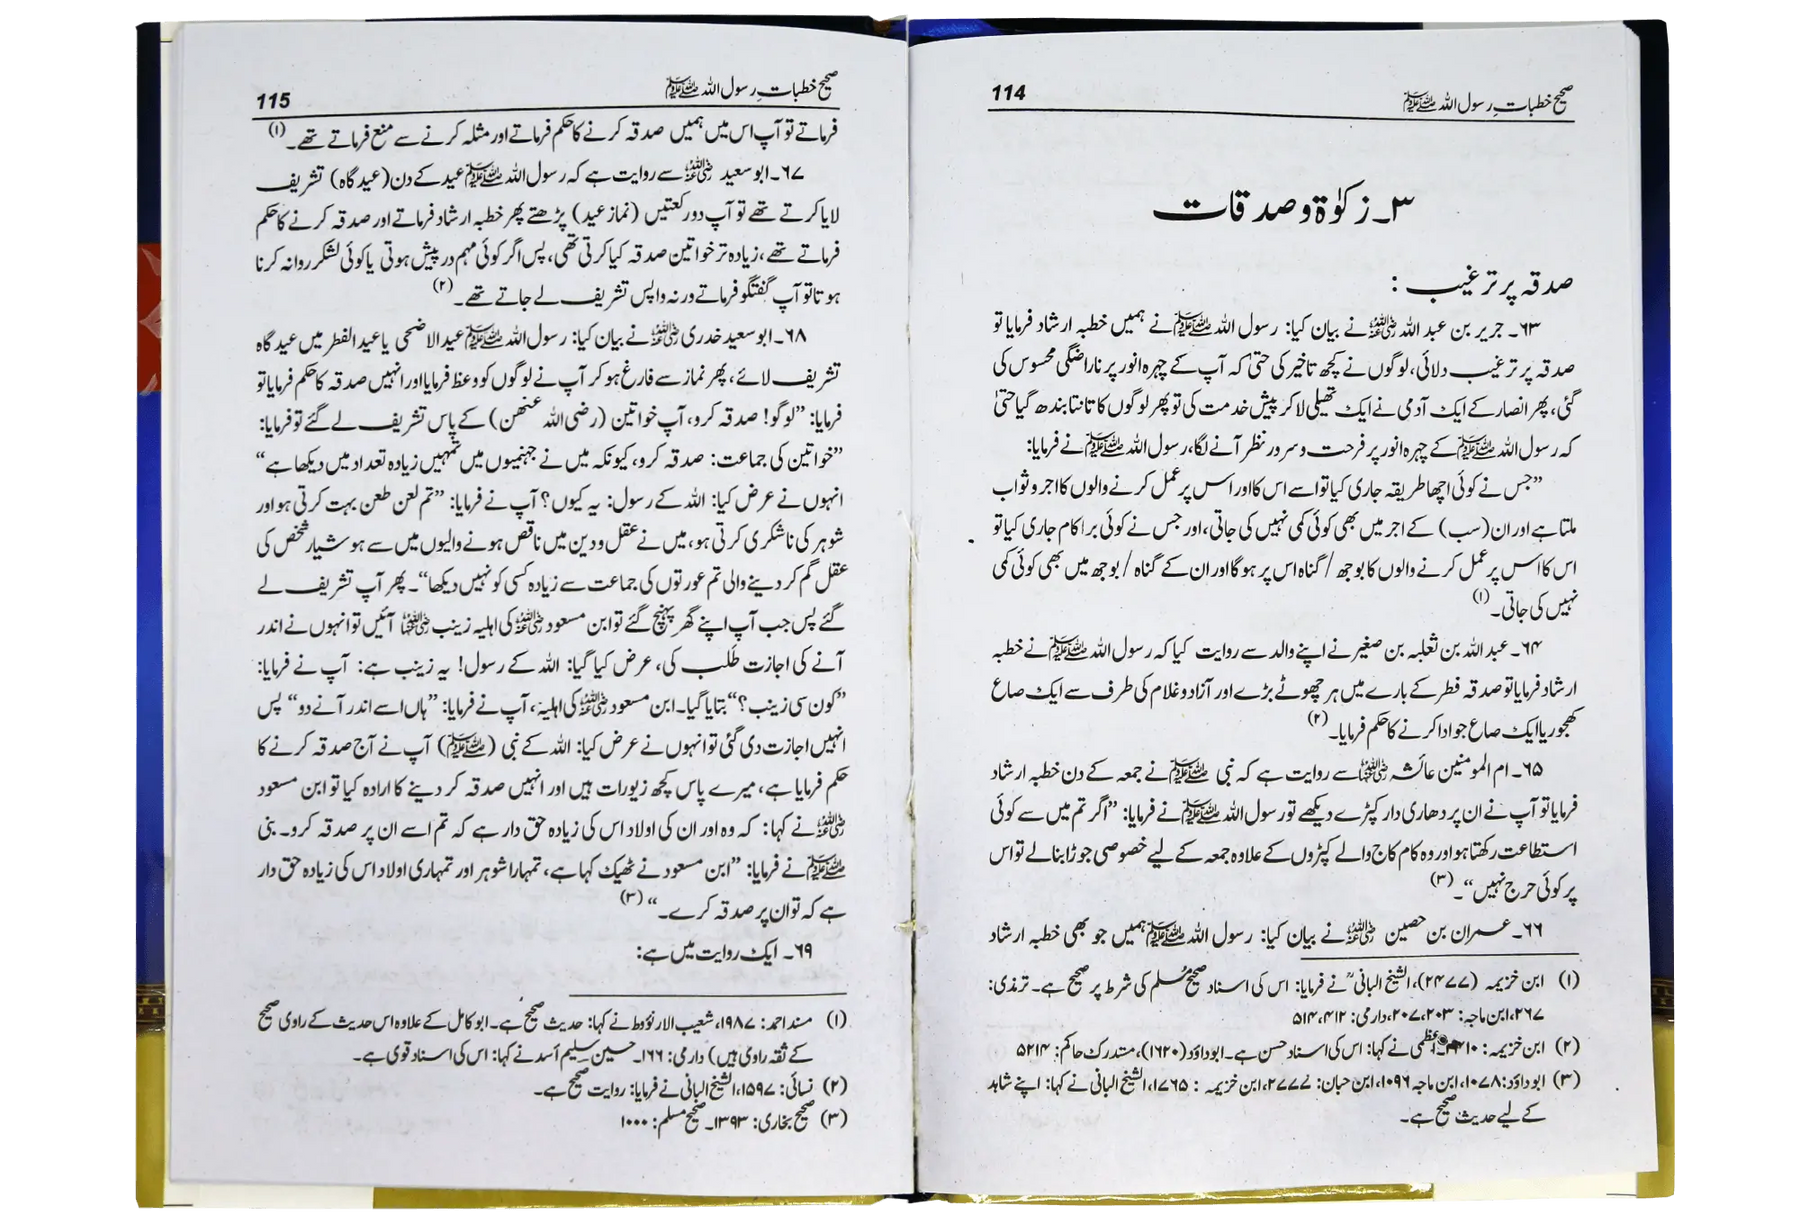 صحیح خطباتِ رسول اللہ ﷺ 114
۳۔ زکوٰۃ و صدقات
صدقہ پر ترغیب :
۶۳۔ جریر بن عبد اللہ رضی اللہ عنہ نے بیان کیا: رسول اللہ ﷺ نے ہمیں خطبہ ارشاد فرمایا تو
صدقہ پر ترغیب دلائی، لوگوں نے کچھ تاخیر کی حتیٰ کہ آپ کے چہرہ انور پر ناراضگی محسوس کی
گئی، پھر انصار کے ایک آدمی نے ایک تھیلی لا کر پیش خدمت کی تو پھر لوگوں کا تانتا بندھ گیا حتیٰ
کہ رسول اللہ ﷺ کے چہرہ انور پر فرحت و سرور نظر آنے لگا، رسول اللہ ﷺ نے فرمایا:
”جس نے کوئی اچھا طریقہ جاری کیا تو اسے اس کا اور اس پر عمل کرنے والوں کا اجر و ثواب
ملتا ہے اور ان (سب) کے اجر میں بھی کوئی کمی نہیں کی جاتی، اور جس نے کوئی برا کام جاری کیا تو
اس کا اس پر عمل کرنے والوں کا بوجھ / گناہ اس پر ہو گا اور ان کے گناہ / بوجھ میں بھی کوئی کمی
نہیں کی جاتی۔ (۱)
۶۴۔ عبد اللہ بن ثعلبہ بن صغیر نے اپنے والد سے روایت کیا کہ رسول اللہ ﷺ نے خطبہ
ارشاد فرمایا تو صدقہ فطر کے بارے میں ہر چھوٹے بڑے اور آزاد و غلام کی طرف سے ایک صاع
کھجور یا ایک صاع جو ادا کرنے کا حکم فرمایا۔ (۲)
۶۵۔ ام المومنین عائشہ رضی اللہ عنہا سے روایت ہے کہ نبی ﷺ نے جمعہ کے دن خطبہ ارشاد
فرمایا تو آپ نے ان پر دھاری دار کپڑے دیکھے تو رسول اللہ ﷺ نے فرمایا: ”اگر تم میں سے کوئی
استطاعت رکھتا ہو اور وہ کام کاج والے کپڑوں کے علاوہ جمعہ کے لیے خصوصی جوڑا بنا لے تو اس
پر کوئی حرج نہیں“۔ (۳)
۶۶۔ عمران بن حصین رضی اللہ عنہ نے بیان کیا: رسول اللہ ﷺ ہمیں جو بھی خطبہ ارشاد
(۱) ابن خزیمہ (۲۴۷۷)، الشیخ البانی ؒ نے فرمایا: اس کی اسناد صحیح مسلم کی شرط پر صحیح ہے۔ ترمذی:
۲۶۷، ابن ماجہ: ۲۰۷،۲۰۳، دارمی: ۵۱۴،۴۱۲
(۲) ابن خزیمہ: ۲۴۱۰۔ اعظمی نے کہا: اس کی اسناد حسن ہے۔ ابوداؤد (۱۶۲۰)، مستدرک حاکم: ۵۲۱۴
(۳) ابوداؤد: ۱۰۷۸، ابن ماجہ ۱۰۹۶، ابن حبان: ۲۷۷۷، ابن خزیمہ : ۱۷۶۵، الشیخ البانی نے کہا: اپنے شاہد
کے لیے حدیث صحیح ہے۔
صحیح خطباتِ رسول اللہ ﷺ 115
فرماتے تو آپ اس میں ہمیں صدقہ کرنے کا حکم فرماتے اور مثلہ کرنے سے منع فرماتے تھے۔ (۱)
۶۷۔ ابو سعید رضی اللہ عنہ سے روایت ہے کہ رسول اللہ ﷺ عید کے دن (عید گاہ) تشریف
لایا کرتے تھے تو آپ دو رکعتیں (نماز عید) پڑھتے پھر خطبہ ارشاد فرماتے اور صدقہ کرنے کا حکم
فرماتے تھے، زیادہ تر خواتین صدقہ کیا کرتی تھی، پس اگر کوئی مہم در پیش ہوتی یا کوئی لشکر روانہ کرنا
ہوتا تو آپ گفتگو فرماتے ورنہ واپس تشریف لے جاتے تھے۔ (۲)
۶۸۔ ابو سعید خدری رضی اللہ عنہ نے بیان کیا: رسول اللہ ﷺ عید الاضحی یا عید الفطر میں عید گاہ
تشریف لائے، پھر نماز سے فارغ ہو کر آپ نے لوگوں کو وعظ فرمایا اور انہیں صدقہ کا حکم فرمایا تو
فرمایا: ”لوگو! صدقہ کرو، آپ خواتین (رضی اللہ عنھن) کے پاس تشریف لے گئے تو فرمایا:
”خواتین کی جماعت: صدقہ کرو، کیونکہ میں نے جہنمیوں میں تمہیں زیادہ تعداد میں دیکھا ہے“
انہوں نے عرض کیا: اللہ کے رسول: یہ کیوں؟ آپ نے فرمایا: ”تم لعن طعن بہت کرتی ہو اور
شوہر کی ناشکری کرتی ہو، میں نے عقل و دین میں ناقص ہونے والیوں میں سے ہوشیار شخص کی
عقل گم کر دینے والی تم عورتوں کی جماعت سے زیادہ کسی کو نہیں دیکھا“۔ پھر آپ تشریف لے
گئے پس جب آپ اپنے گھر پہنچ گئے تو ابن مسعود رضی اللہ عنہ کی اہلیہ زینب رضی اللہ عنہا آئیں تو انہوں نے اندر
آنے کی اجازت طلب کی، عرض کیا گیا: اللہ کے رسول! یہ زینب ہے: آپ نے فرمایا:
”کون سی زینب؟“ بتایا گیا۔ ابن مسعود رضی اللہ عنہ کی اہلیہ، آپ نے فرمایا: ”ہاں اسے اندر آنے دو“ پس
انہیں اجازت دی گئی تو انہوں نے عرض کیا: اللہ کے نبی (ﷺ) آپ نے آج صدقہ کرنے کا
حکم فرمایا ہے، میرے پاس کچھ زیورات ہیں اور انہیں صدقہ کر دینے کا ارادہ کیا تو ابن مسعود
رضی اللہ عنہ نے کہا: کہ وہ اور ان کی اولاد اس کی زیادہ حق دار ہے کہ تم اسے ان پر صدقہ کرو۔ بنی
ﷺ نے فرمایا: ”ابن مسعود نے ٹھیک کہا ہے، تمہارا شوہر اور تمہاری اولاد اس کی زیادہ حق دار
ہے کہ تو ان پر صدقہ کرے۔“ (۳)
۶۹۔ ایک روایت میں ہے:
(۱) مسند احمد: ۱۹۸۷، شعیب الارنؤوط نے کہا: حدیث صحیح ہے۔ ابو کامل کے علاوہ اس حدیث کے راوی صحیح
کے ثقہ راوی ہیں) دارمی: ۱۶۶۔ حسین سلیم أسد نے کہا: اس کی اسناد قوی ہے۔
(۲) نسائی: ۱۵۹۷، الشیخ البانی نے فرمایا: روایت صحیح ہے۔
(۳) صحیح بخاری: ۱۳۹۳۔ صحیح مسلم: ۱۰۰۰